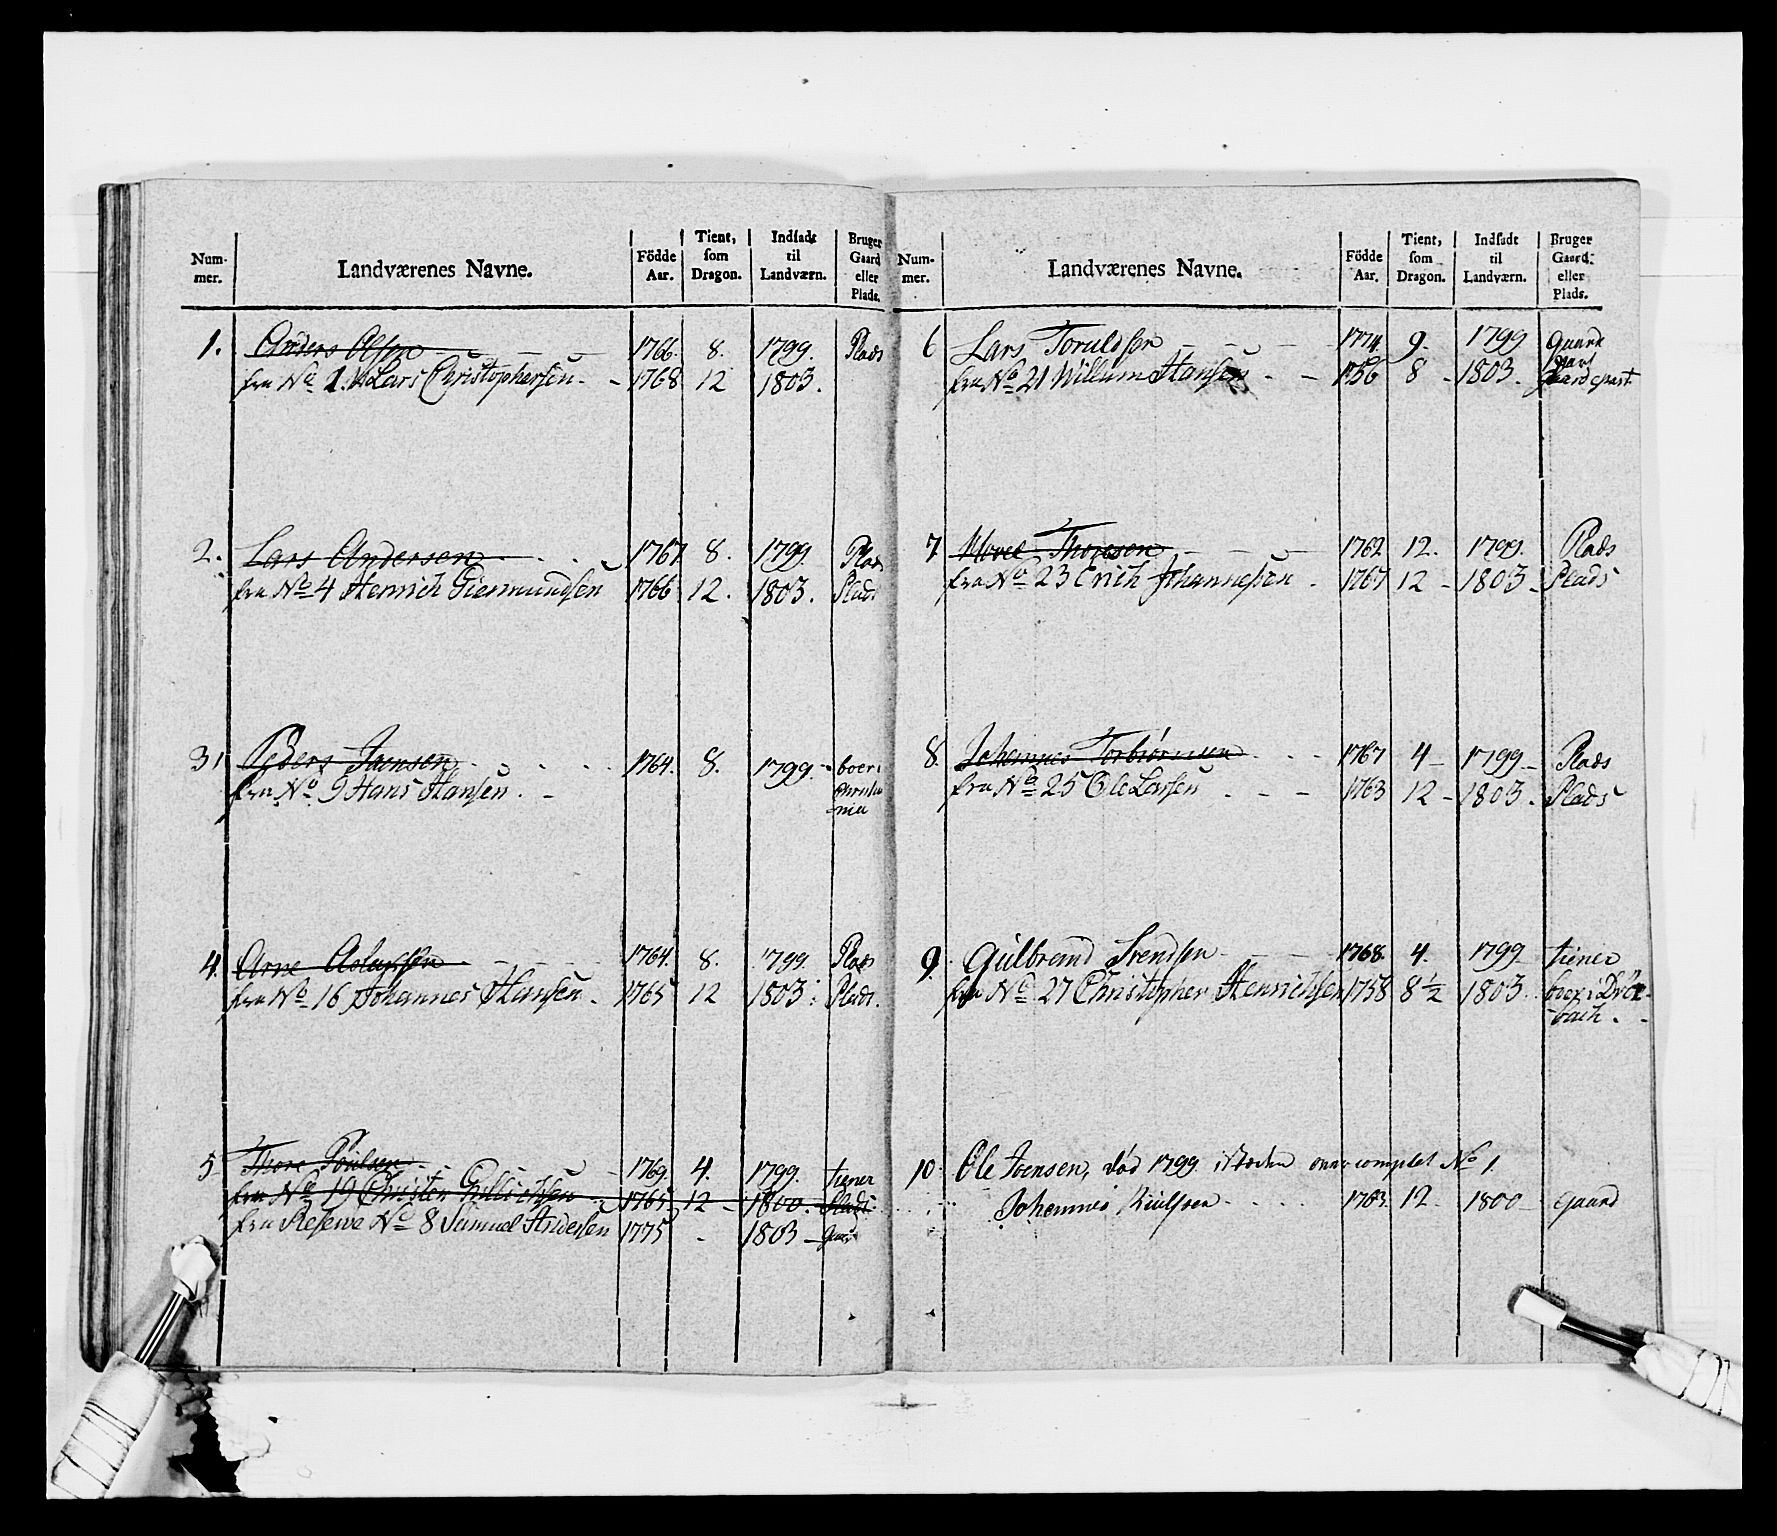 Num-
mer.
Landværenes Navne.
Födde
Aar.
Tient,
som
Dragon.
Indsadt
til
Landværn.
Bruger
Gaard
eller
Plads.
1. Anders Olsen 1766. 8. 1799. Plads
fra No 1. Lars Christophersen 1768 12 1803.
2. Lars Andersen 1767 8. 1799. Plads
fra No 4 Henrich Giermundsen 1766 12. 1803. Plads
3 Peders Jaensen 1764. 8. 1799. boer i
fra No 9 Hans Hansen Christia
-nia
4. Arne Aslaksen 1764. 8. 1799. Plads
fra No 16 Johannes Hansen 1765 12 1803. Plads.
5 Thore Poulsen 1769. 4. 1799. tiener
fra No 19 Christen Gulbrandsen 1765 12 1800. Plads
fra Reserve No 8 Samuel Andersen 1775 - 1803 Gaard
Num-
mer.
Landværenes Navne.
Födde
Aar.
Tient,
som
Dragon.
Indsadt
til
Landværn.
Bruger
Gaard
eller
Plads.
6 Lars Toruldsen 1774. 9. 1799 Gaard
fra No 21 Willum Hansen 1756 8 - 1803. Gaardepart
7 Thoresen 1762 12. 1799. Plads
fra No 23 Erich Johannesen 1767 12 - 1803 - Plads
8. Johannes Torbiörnsen 1767 4 - 1799 - Plads
fra No 25 Ole Larsen 1763 12 - 1803. Plads
9. Gulbrand Svendsen 1768. 4. 1799 tiener
fra No 27 Christopher Henrichsen 1758 8 1/2 1803. boer i Dröe-
bach.
10. Ole Joensen, död 1799 i Steden overcomplet No 1.
Johannes 1763. 12. 1800 - Gaard